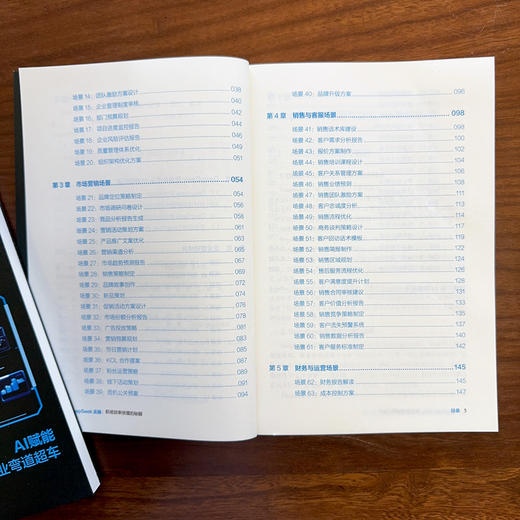 场景 14：团队激励方案设计 038
场景 15：企业管理制度审核 041
场景 16：部门预算规划 043
场景 17：项目进度监控报告 045
场景 18：企业风险评估报告 047
场景 19：质量管理体系优化 049
场景 20：组织架构优化方案 051
第 3 章 市场营销场景 054
场景 21：品牌定位策略制定 054
场景 22：市场调研问卷设计 057
场景 23：竞品分析报告生成 058
场景 24：营销活动策划方案 060
场景 25：产品推广文案优化 063
场景 26：营销渠道分析 064
场景 27：市场趋势预测报告 066
场景 28：销售策略制定 068
场景 29：品牌故事创作 070
场景 30：新品策划 072
场景 31：促销活动方案设计 075
场景 32：市场份额分析报告 078
场景 33：广告投放策略 081
场景 34：营销预算规划 083
场景 35：节日营销计划 085
场景 36：KOL 合作提案 087
场景 37：粉丝运营策略 089
场景 38：线下活动策划 091
场景 39：危机公关预案 094
场景 40：品牌升级方案 096
第 4 章 销售与客服场景 098
场景 41：销售话术库建设 098
场景 42：客户需求分析报告 101
场景 43：报价方案制作 103
场景 44：销售培训课程设计 104
场景 45：客户关系管理方案 107
场景 46：销售业绩预测 109
场景 47：销售团队激励方案 111
场景 48：客户忠诚度分析 113
场景 49：销售流程优化 114
场景 50：商务谈判策略设计 117
场景 51：客户回访话术模板 119
场景 52：销售简报制作 122
场景 53：销售区域规划 124
场景 54：售后服务流程优化 127
场景 55：客户满意度提升计划 131
场景 56：销售合同审核建议 133
场景 57：客户价值分析报告 135
场景 58：销售竞争策略制定 137
场景 59：客户流失预警系统 139
场景 60：销售数据分析报告 141
场景 61：客户服务标准制定 143
第 5 章 财务与运营场景 145
场景 62：财务报告解读 145
场景 63：成本控制方案
目录 3
AI赋能
业弯道超车